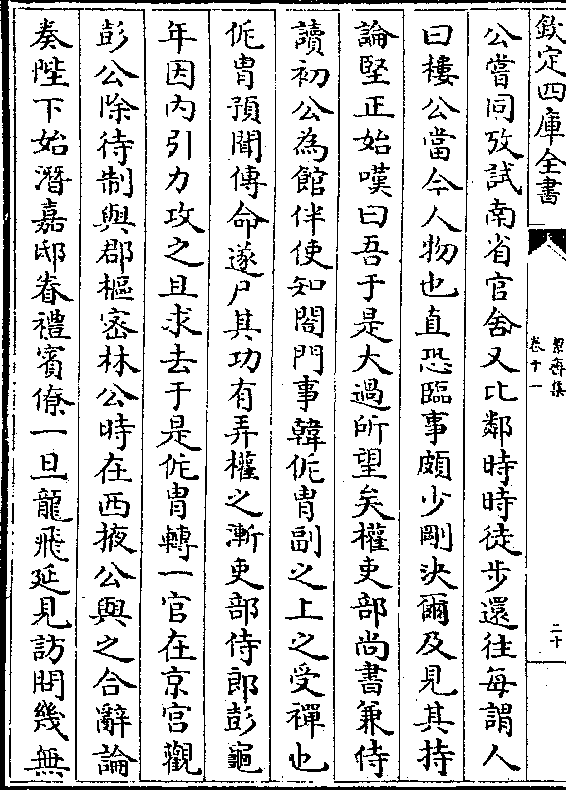 欽定四庫全書
絜齋集
卷十一
二十
公嘗同攷試南省官舍又比鄰時時徒步還往每謂人
曰樓公當今人物也直恐臨事頗少剛決爾及見其持
論堅正始嘆曰吾于是大過所望矣權吏部尚書兼侍
讀初公為館伴使知閤門事韓侂胄副之上之受禪也
侂胄預聞傳命遂尸其功有弄權之漸吏部侍郎彭龜
年因內引力攻之且求去于是侂胄轉一官在京宮觀
彭公除待制與郡樞密林公時在西掖公與之合辭論
奏陛下始潛嘉邸眷禮賓僚一旦龍飛延見訪問幾無